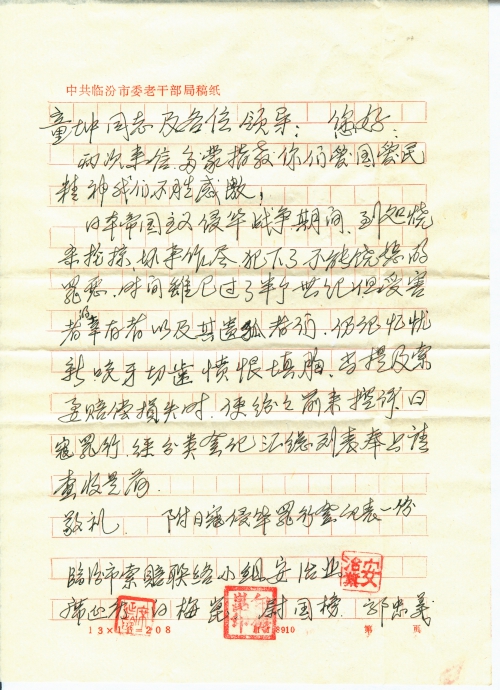 中共临汾市委老干部局稿纸
童坤同志及各位领导：您好：
两次来信多蒙指教你们爱国爱民
精神我们不胜感激！
日本帝国主义侵华战争期间，到处烧
杀抢掠，坏事作尽，犯下了不能饶恕的
罪恶，时间虽已过了半个世纪但受害
者幸存者以及其遗孤者们，仍记忆犹
新，咬牙切齿愤恨填胸，当提及索
要赔偿损失时，便纷纷前来控诉日
寇罪行，经分类登记汇总列表奉上请
查收是荷
敬礼 附日寇侵华罪行登记表一份
临汾市索赔联络小组安治业
席 白梅 尉国榜 郭忠义
13×1 =208 8910 第 页